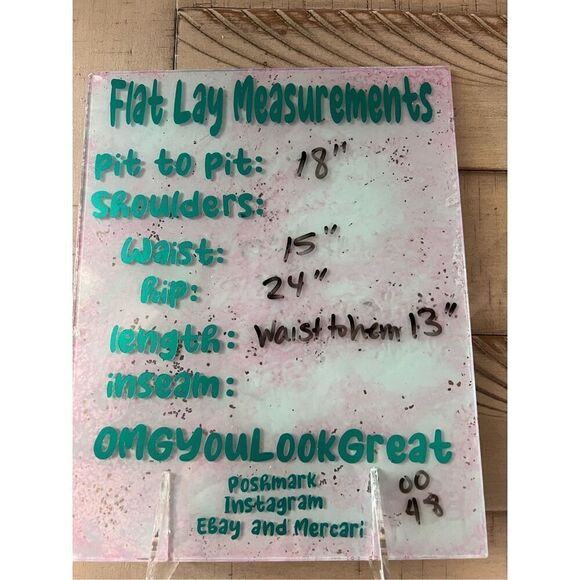 Flat Lay Measurements
Pit to Pit: 18"
Shoulders:
Waist: 15"
hip: 24"
length: Waist to hem 13"
inseam:
OMGYouLookGreat
Poshmark
Instagram
Ebay and Mercari
00
48